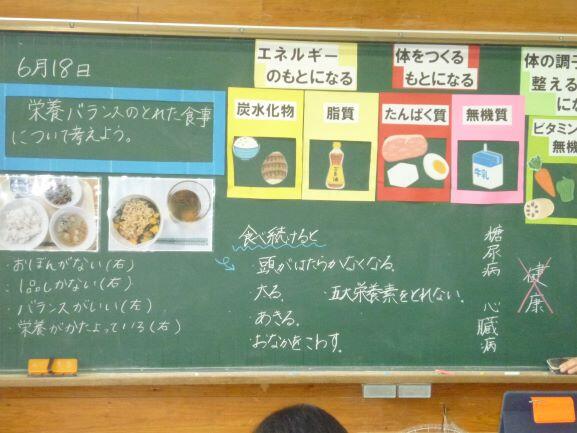 6月18日
栄養バランスのとれた食事
について考えよう。
エネルギー
のもとになる
体をつくる
もとになる
体の調子
整える
にな
炭水化物
脂質
たんぱく質
無機質
ビタミン
無機
牛乳
・おぼんがない(右)
・1品しかない(右)
・バランスがいい(左)
・栄養がかたよっている(右)
食べ続けると
・頭がはたらかなくなる。
・太る。
・五大栄養素をとれない。
・あきる。
・おなかをこわす。
糖尿病
心臓病
健康